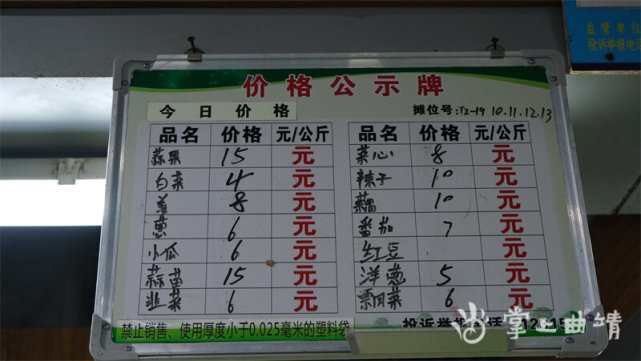 价格公示牌
今日价格
摊位号:12-19 10.11.12.13
品名 价格 元/公斤
蒜果 15 元
白菜 4 元
姜 8 元
葱 6 元
小瓜 6 元
蒜苗 15 元
韭菜 6 元
品名 价格 元/公斤
菜心 8 元
辣子 10 元
藕 10 元
番茄 7 元
红豆 元
洋葱 5 元
飘风菜 6 元
禁止销售、使用厚度小于0.025毫米的塑料袋
投诉举报
掌上曲靖
监管单位
投诉举报电